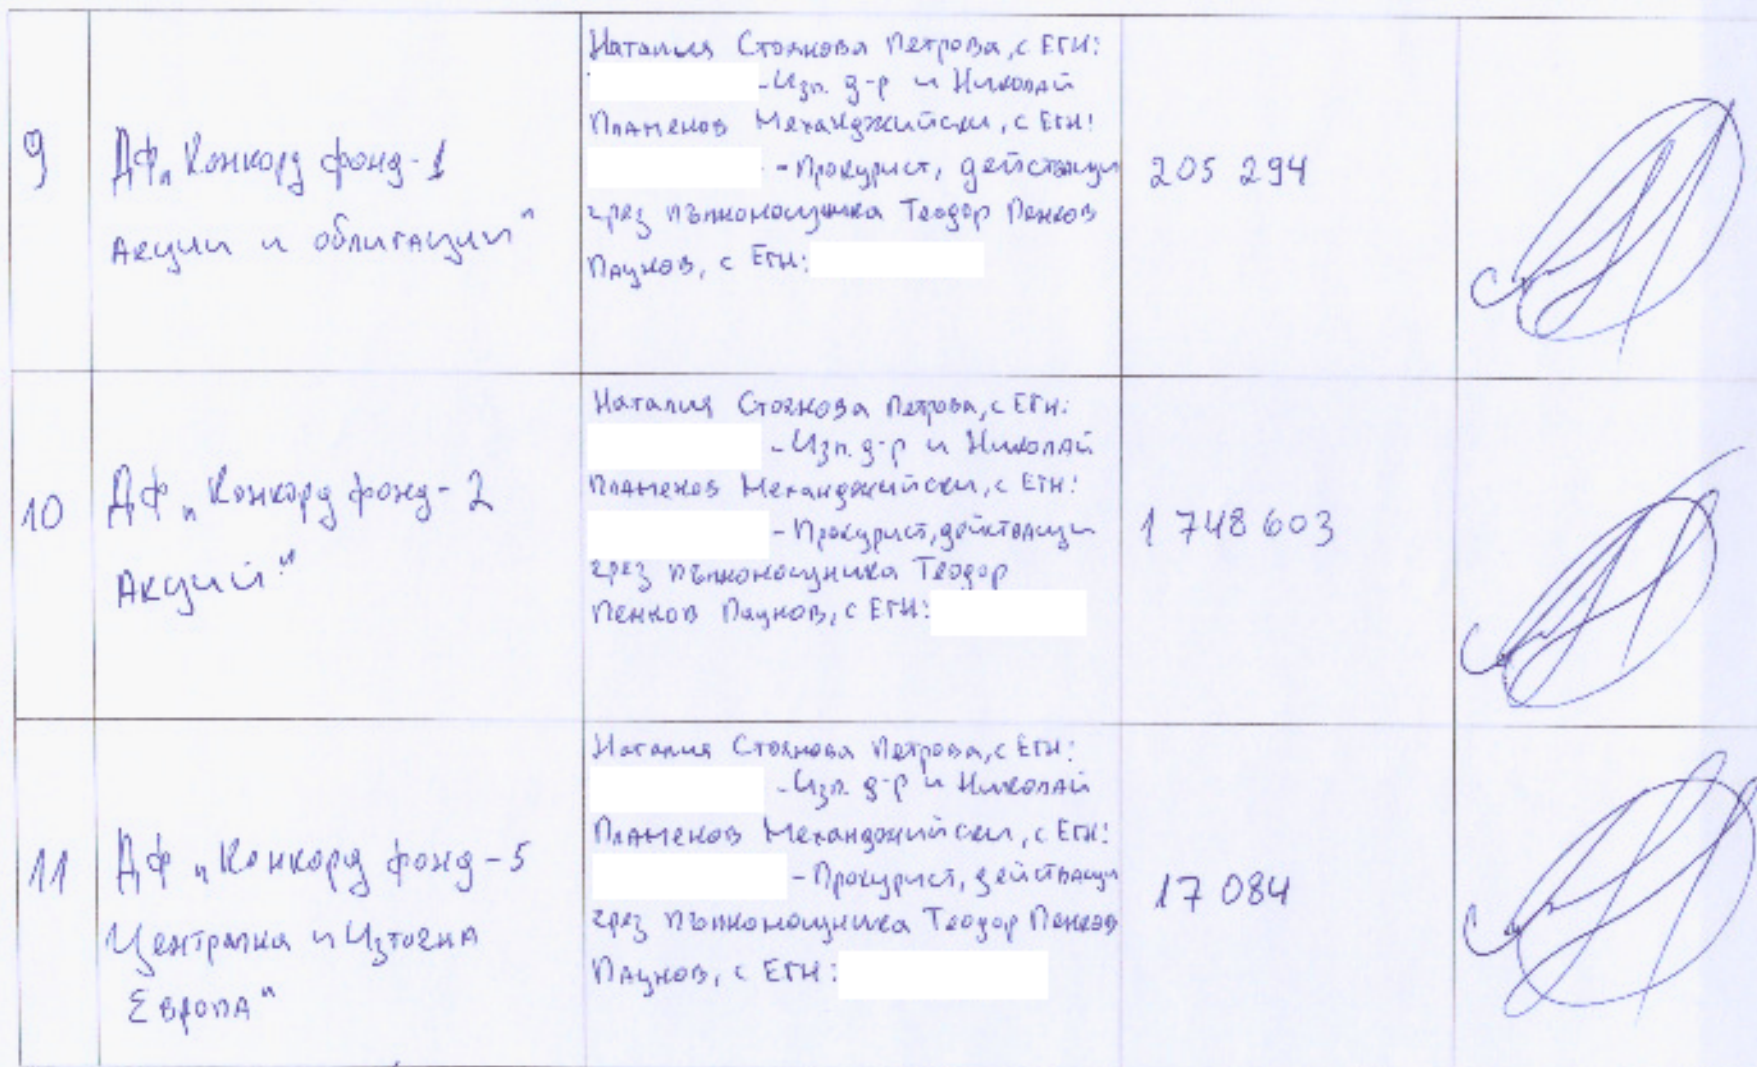 9
ДФ „Конкорд фонд-1
Акции и облигации“
Наталия Стоянова Петрова, с ЕГН:
-Изп. д-р и Николай
Пламенов Механджийски, с ЕГН:
- Прокурист, действащи
чрез пълномощника Теодор Пенков
Паунов, с ЕГН:
205 294
10
ДФ „Конкорд фонд-2
Акции“
Наталия Стоянова Петрова, с ЕГН:
-Изп. д-р и Николай
Пламенов Механджийски, с ЕГН:
- Прокурист, действащи
чрез пълномощника Теодор
Пенков Паунов, с ЕГН:
1 748 603
11
ДФ „Конкорд фонд-5
Централна и Източна
Европа“
Наталия Стоянова Петрова, с ЕГН:
-Изп. д-р и Николай
Пламенов Механджийски, с ЕГН:
- Прокурист, действащи
чрез пълномощника Теодор Пенков
Паунов, с ЕГН:
17 084